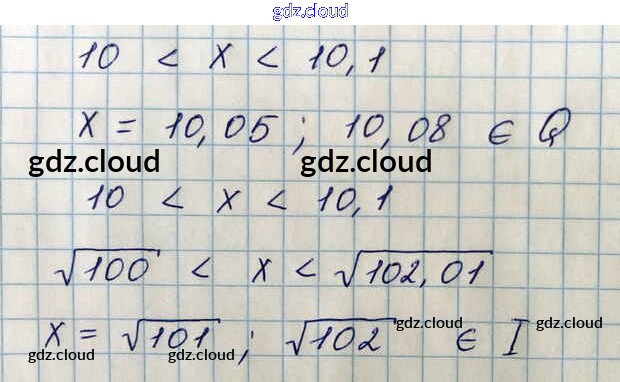 gdz.cloud
10 < x < 10,1
x = 10,05 ; 10,08 ∈ Q
gdz.cloud gdz.cloud
10 < x < 10,1
√100 < x < √102,01
x = √101 ; √102 ∈ I
gdz.cloud gdz.cloud
gdz.cloud gdz.cloud gdz.cloud